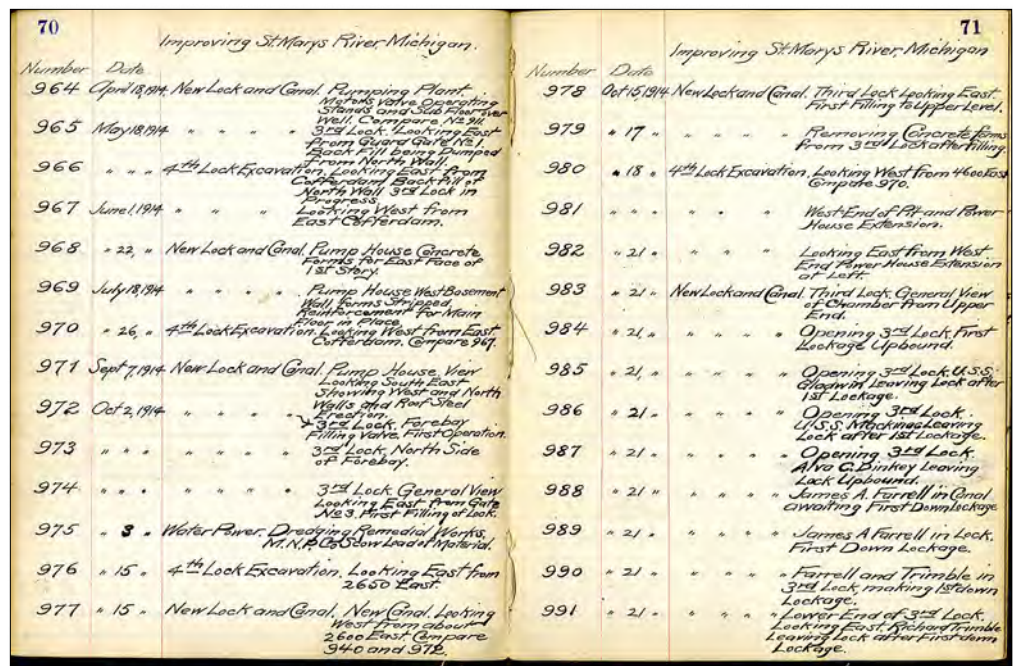 70
Improving St. Marys River, Michigan.
Number Date
964 April 18, 1914 New Lock and Canal. Pumping Plant
Motors Valve Operating
Stands and Sub Floor over
Well. Compare No 911.
965 May 18, 1914 " " " " 3rd Lock. Looking East
from Guard Gate No 1.
Back Fill being Dumped
from North Wall.
966 " " " 4th Lock Excavation, Looking East from
Cofferdam Back Fill of
North Wall 3rd Lock in
Progress.
967 June 1, 1914 " " " Looking West from
East Cofferdam.
968 " 22, " New Lock and Canal. Pump House Concrete
Forms for East Face of
1st Story.
969 July 18, 1914 " " " " Pump House West Basement
Wall, Forms Stripped,
Reinforcement for Main
Floor in Place.
970 " 26, " 4th Lock Excavation. Looking West from East
Cofferdam. Compare 967.
971 Sept 7, 1914 New Lock and Canal. Pump House. View
Looking South East
Showing West and North
Walls and Roof Steel
Erection.
972 Oct 2, 1914 " " " " 3rd Lock, Forebay
Filling Valve, First Operation.
973 " " " " " " " 3rd Lock, North Side
of Forebay.
974 " " " " " " " 3rd Lock General View
Looking East from Gate
No 3. First Filling of Lock.
975 " 3 " Water Power. Dredging, Remedial Works,
M.N.P. Co Scow Load of Material.
976 " 15 " 4th Lock Excavation. Looking East from
2650 East.
977 " 15 " New Lock and Canal. New Canal. Looking
West from about
2600 East. Compare
940 and 972.
71
Improving St. Marys River, Michigan
Number Date
978 Oct 15, 1914 New Lock and Canal. Third Lock Looking East.
First Filling to Upper Level.
979 " 17 " " " " Removing Concrete forms
from 3rd Lock after filling.
980 " 18 " 4th Lock Excavation. Looking West from 4600 East
Compare 970.
981 " " " " " " West End of Pit and Power
House Extension.
982 " 21 " " " " Looking East from West
End Power House Extension
at Left.
983 " 21 " New Lock and Canal. Third Lock. General View
of Chamber from Upper
End.
984 " 21, " " " " " Opening 3rd Lock, First
Lockage Upbound.
985 " 21, " " " " " Opening 3rd Lock, U.S.S.
Gladwin Leaving Lock after
1st Lockage.
986 " 21 " " " " " Opening 3rd Lock.
U.S.S. Mackinac Leaving
Lock after 1st Lockage.
987 " 21 " " " " " Opening 3rd Lock.
Alva C. Dinkey Leaving
Lock Upbound.
988 " 21 " " " " " James A. Farrell in Canal
awaiting First Down Lockage
989 " 21 " " " " " James A Farrell in Lock.
First Down Lockage.
990 " 21 " " " " " Farrell and Trimble in
3rd Lock, making 1st down
Lockage.
991 " 21 " " " " " Lower End of 3rd Lock.
Looking East. Richard Trimble
Leaving Lock after First down
Lockage.